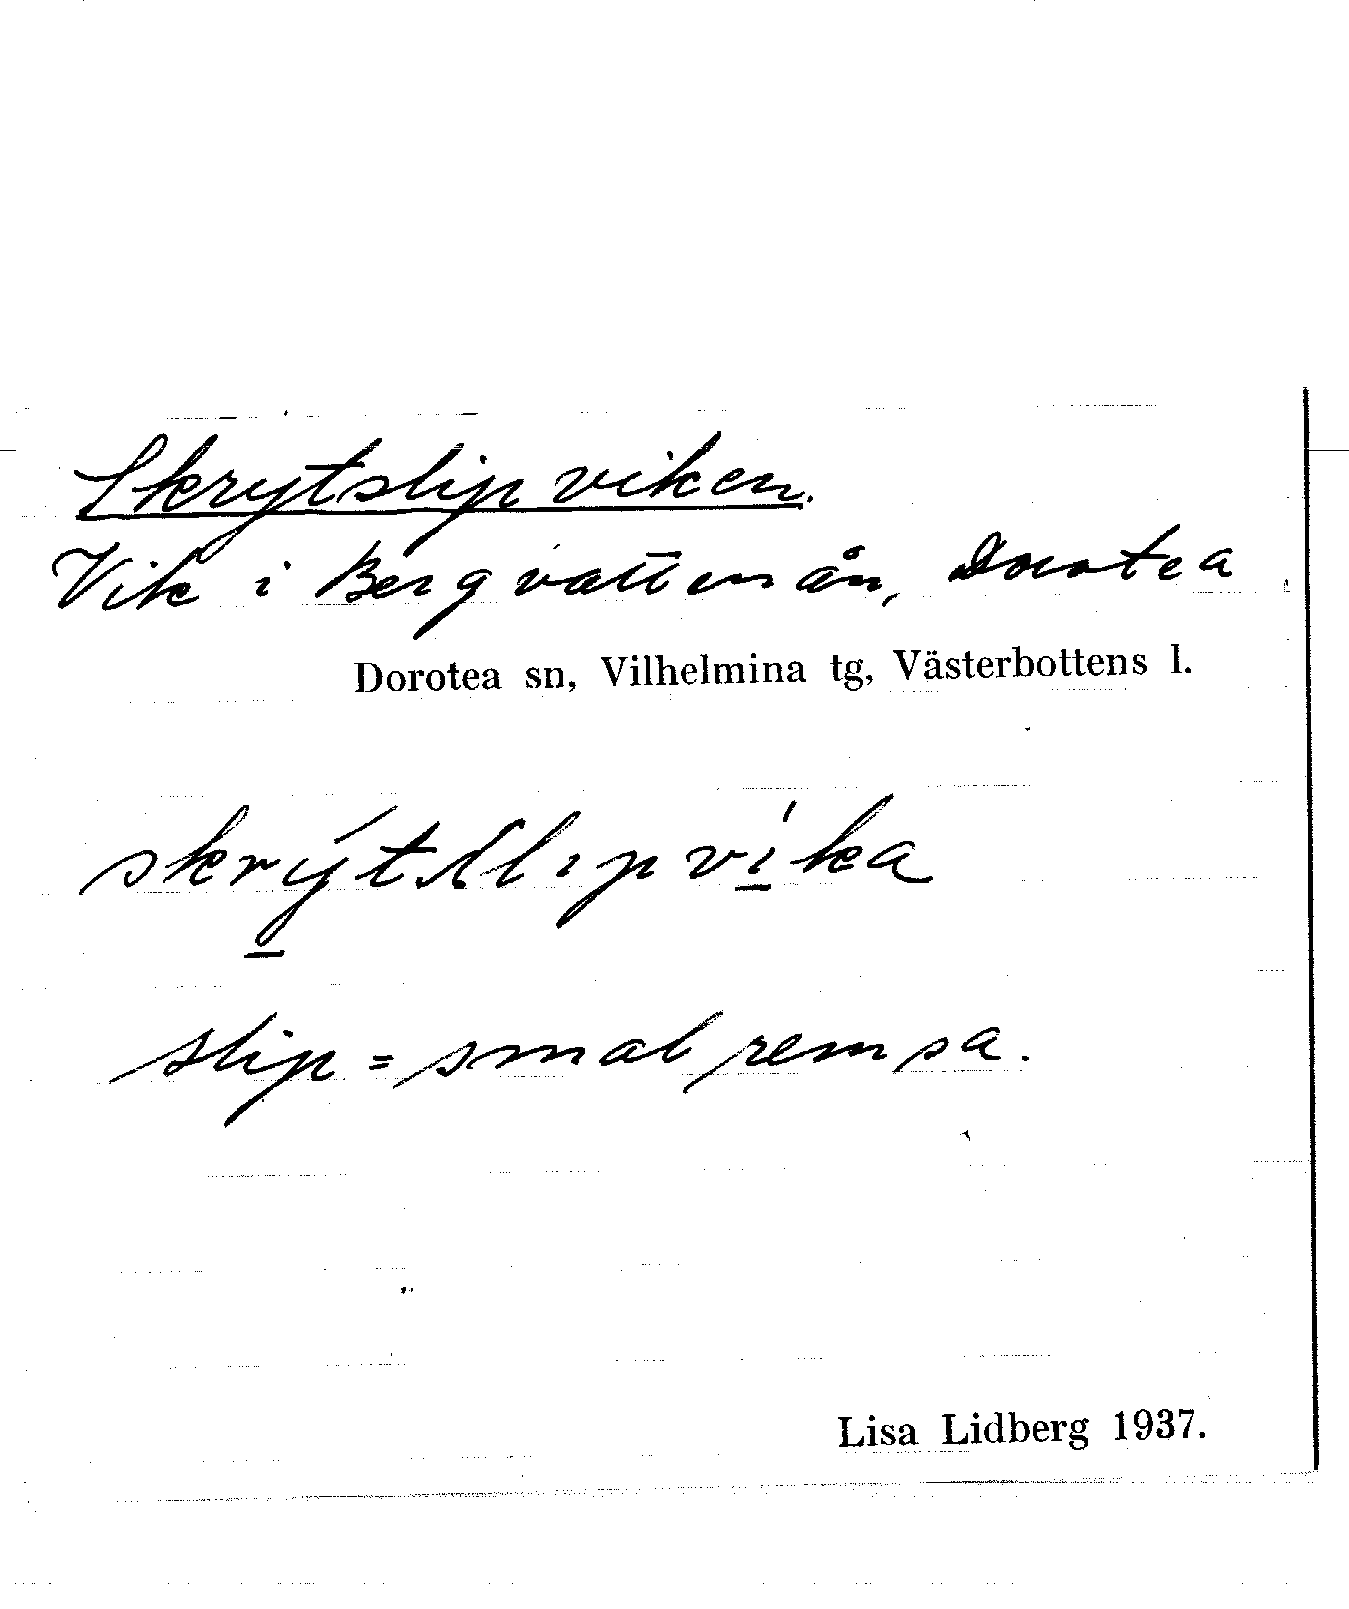 Skrytslipviken.
Vik i Bergvattenån, Dorotea
Dorotea sn, Vilhelmina tg, Västerbottens l.
skrýtslıpvíka
slip = smal remsa.
Lisa Lidberg 1937.